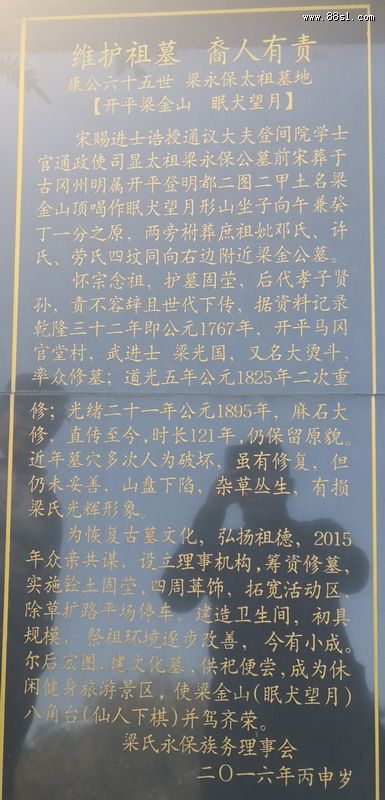 www.88s1.com
维护祖墓 裔人有责
康公六十五世 梁永保太祖墓地
【开平梁金山 眠犬望月】
宋赐进士诰授通议大夫登间院学士
官通政使司显太祖梁永保公墓前宋葬于
古冈州明属开平登明都二图二甲土名梁
金山顶唱作眠犬望月形山坐子向午兼癸
丁一分之原，两旁祔葬庶祖妣邓氏、许
氏、劳氏四坟同向右边附近梁金公墓。
怀宗念祖，护墓固茔，后代孝子贤
孙，责不容辞且世代下传，据资料记录
乾隆三十二年即公元1767年，开平马冈
官堂村，武进士 梁光国，又名大烫斗，
率众修墓；道光五年公元1825年二次重
修；光绪二十一年公元1895年，麻石大
修，直传至今，时长121年，仍保留原貌。
近年墓穴多次人为破坏，虽有修复，但
仍未妥善，山盘下陷，杂草丛生，有损
梁氏光辉形象。
为恢复古墓文化，弘扬祖德，2015
年众亲共谋，设立理事机构，筹资修墓，
实施餀土固茔，四周葺饰，拓宽活动区，
除草扩路平场停车，建造卫生间，初具
规模，祭祖环境逐步改善，今有小成。
尔后宏图，建文化墓，供祀便尝，成为休
闲健身旅游景区，使梁金山(眠犬望月)
八角台(仙人下棋)并驾齐荣。
梁氏永保族务理事会
二〇一六年丙申岁